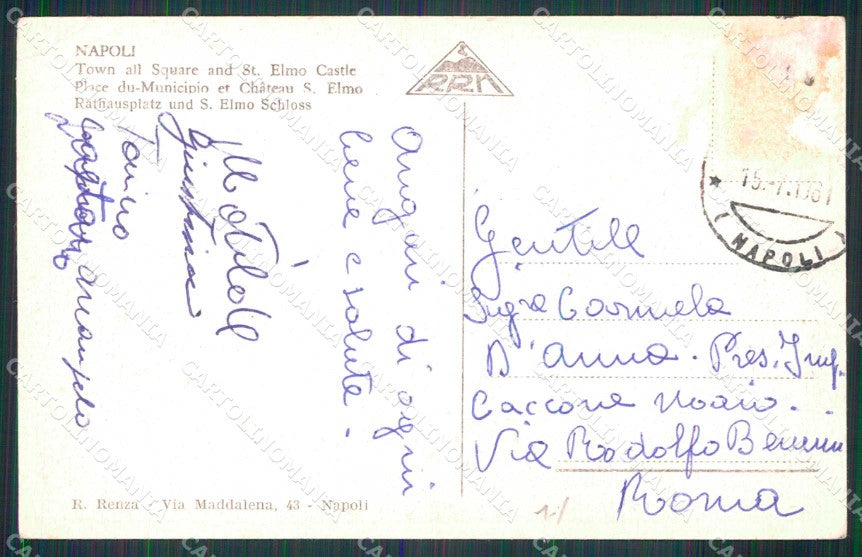 NAPOLI
Town all Square and St. Elmo Castle
Place du-Municipio et Château S. Elmo
Rathausplatz und S. Elmo Schloss
RRN
Auguri di ogni
bene e salute.
Matilde
Giustina
Tonino
Gaetano
Arcangelo
15.-7.1961
NAPOLI
Gentile
Sigra Carmela
D'Anna. Pres. Ing.
Caccone
Via Rodolfo
Roma
R. Renza - Via Maddalena, 43 - Napoli
1/
CARTOLINOMANIA